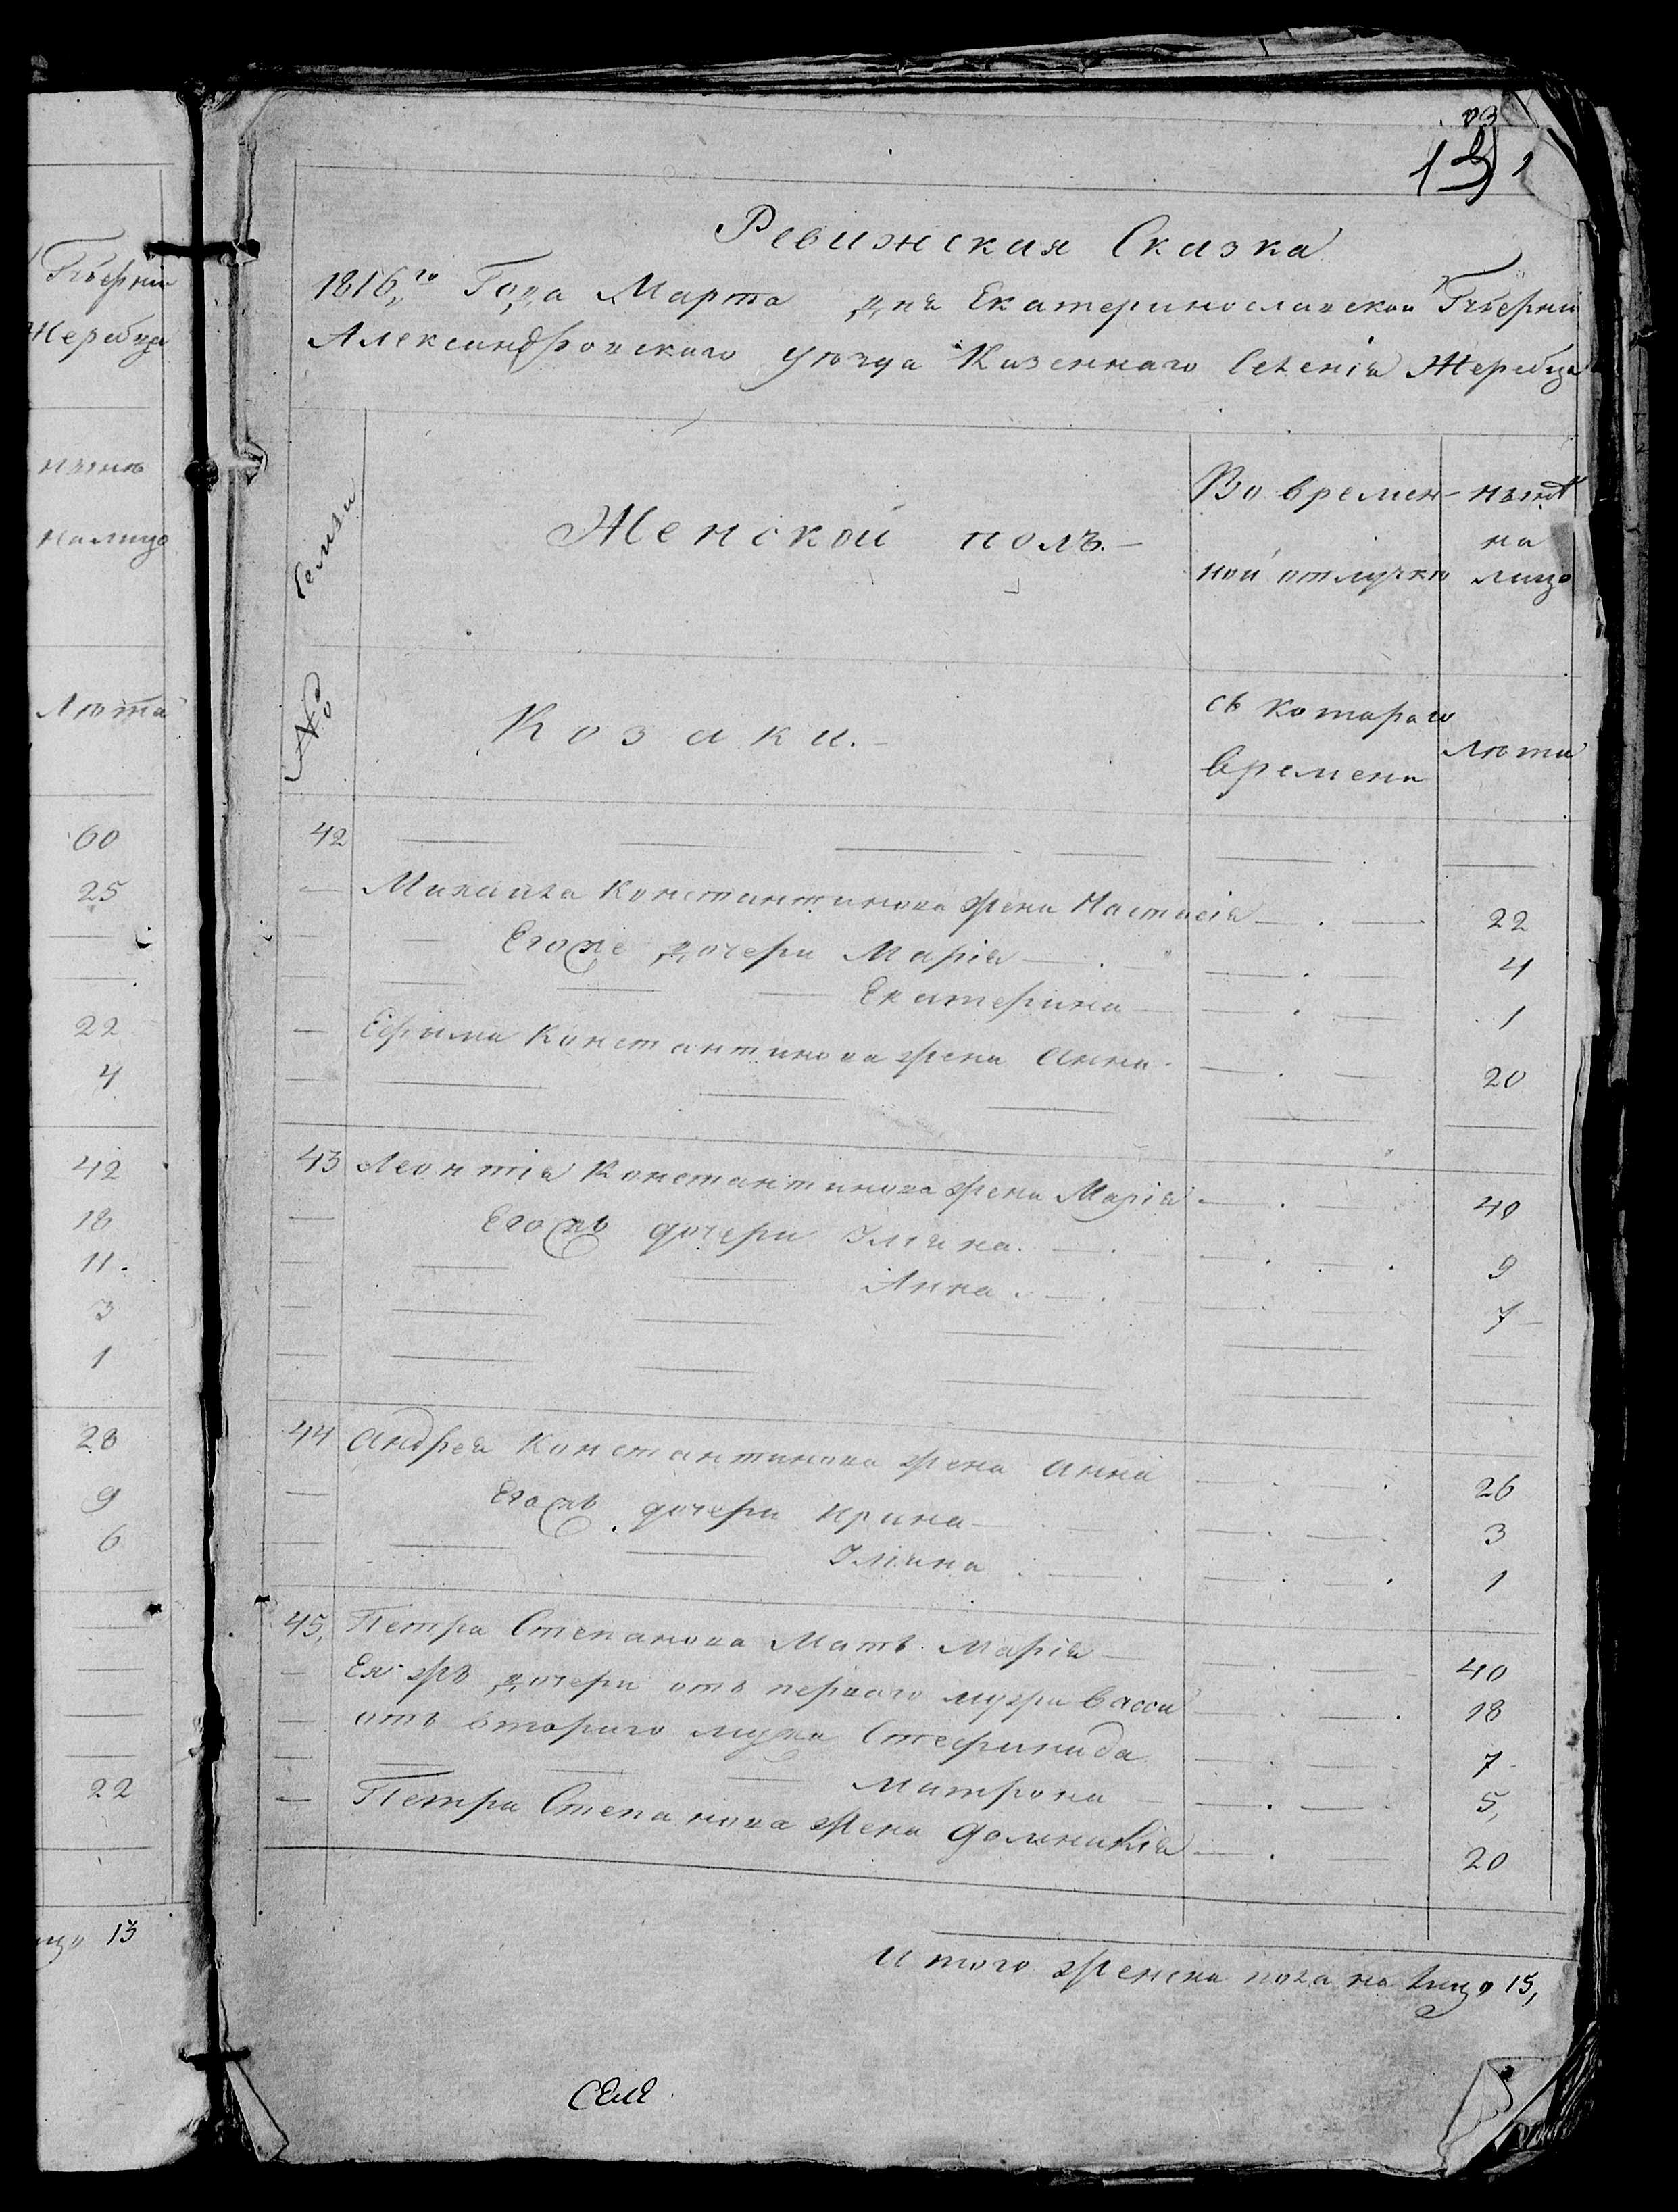 Губерніи
Жеребца
нынѣ
налицо
Лѣта
60
25
22
4
42
18
11.
3
1
28
9
6
22
лицо 13
Ревижская Сказка
1816,,го Года Марта дня Екатеринославской Губерніи
Александровскаго уѣзда Казеннаго Селенія Жеребца
№ Семьи
Женской полъ.
Во времен-ной отлучкѣ
нынѣ на лицо
Козаки.
съ котораго времени
Лѣта
42
Михаила Константинова жена Настасія 22
Егоже дочери Марія 4
Екатерина 1
Ефима Константинова жена Анна 20
43 Леонтія Константинова жена Марія 40
Егожъ дочери Улияна. 9
Анна. 7
44 Андрея Константинова жена Анна 26
Егожъ дочери Ирина 3
Улияна 1
45, Петра Степанова Мать Марія 40
Ея жъ дочери отъ перваго мужа Васса 18
отъ втораго мужа Стефанида 7
Матрона 5,
Петра Степанова жена Домникія 20
Итого женска пола на лицо 15,
СЕЛЕ